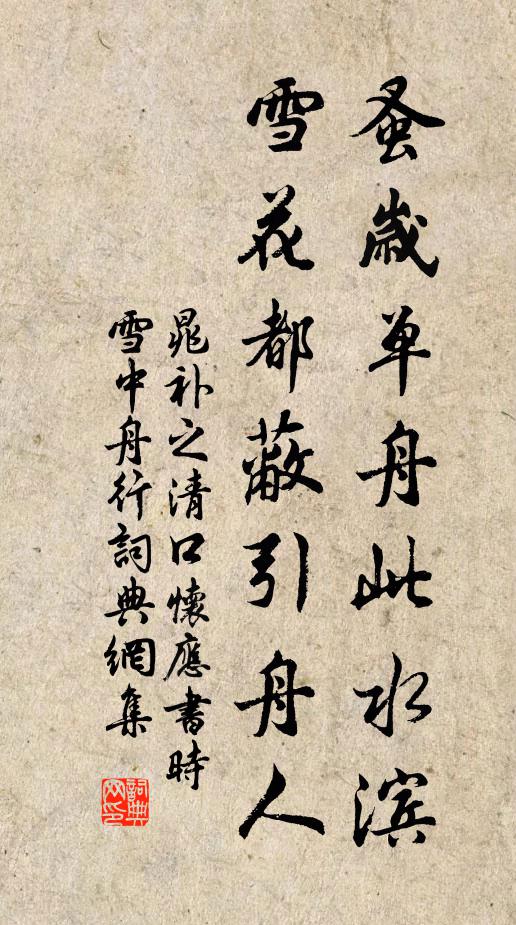 蚤歲单舟此水滨
雪花都蔽引舟人
晁补之清口懷應書時
雪中舟行詞典網集
詞典网印